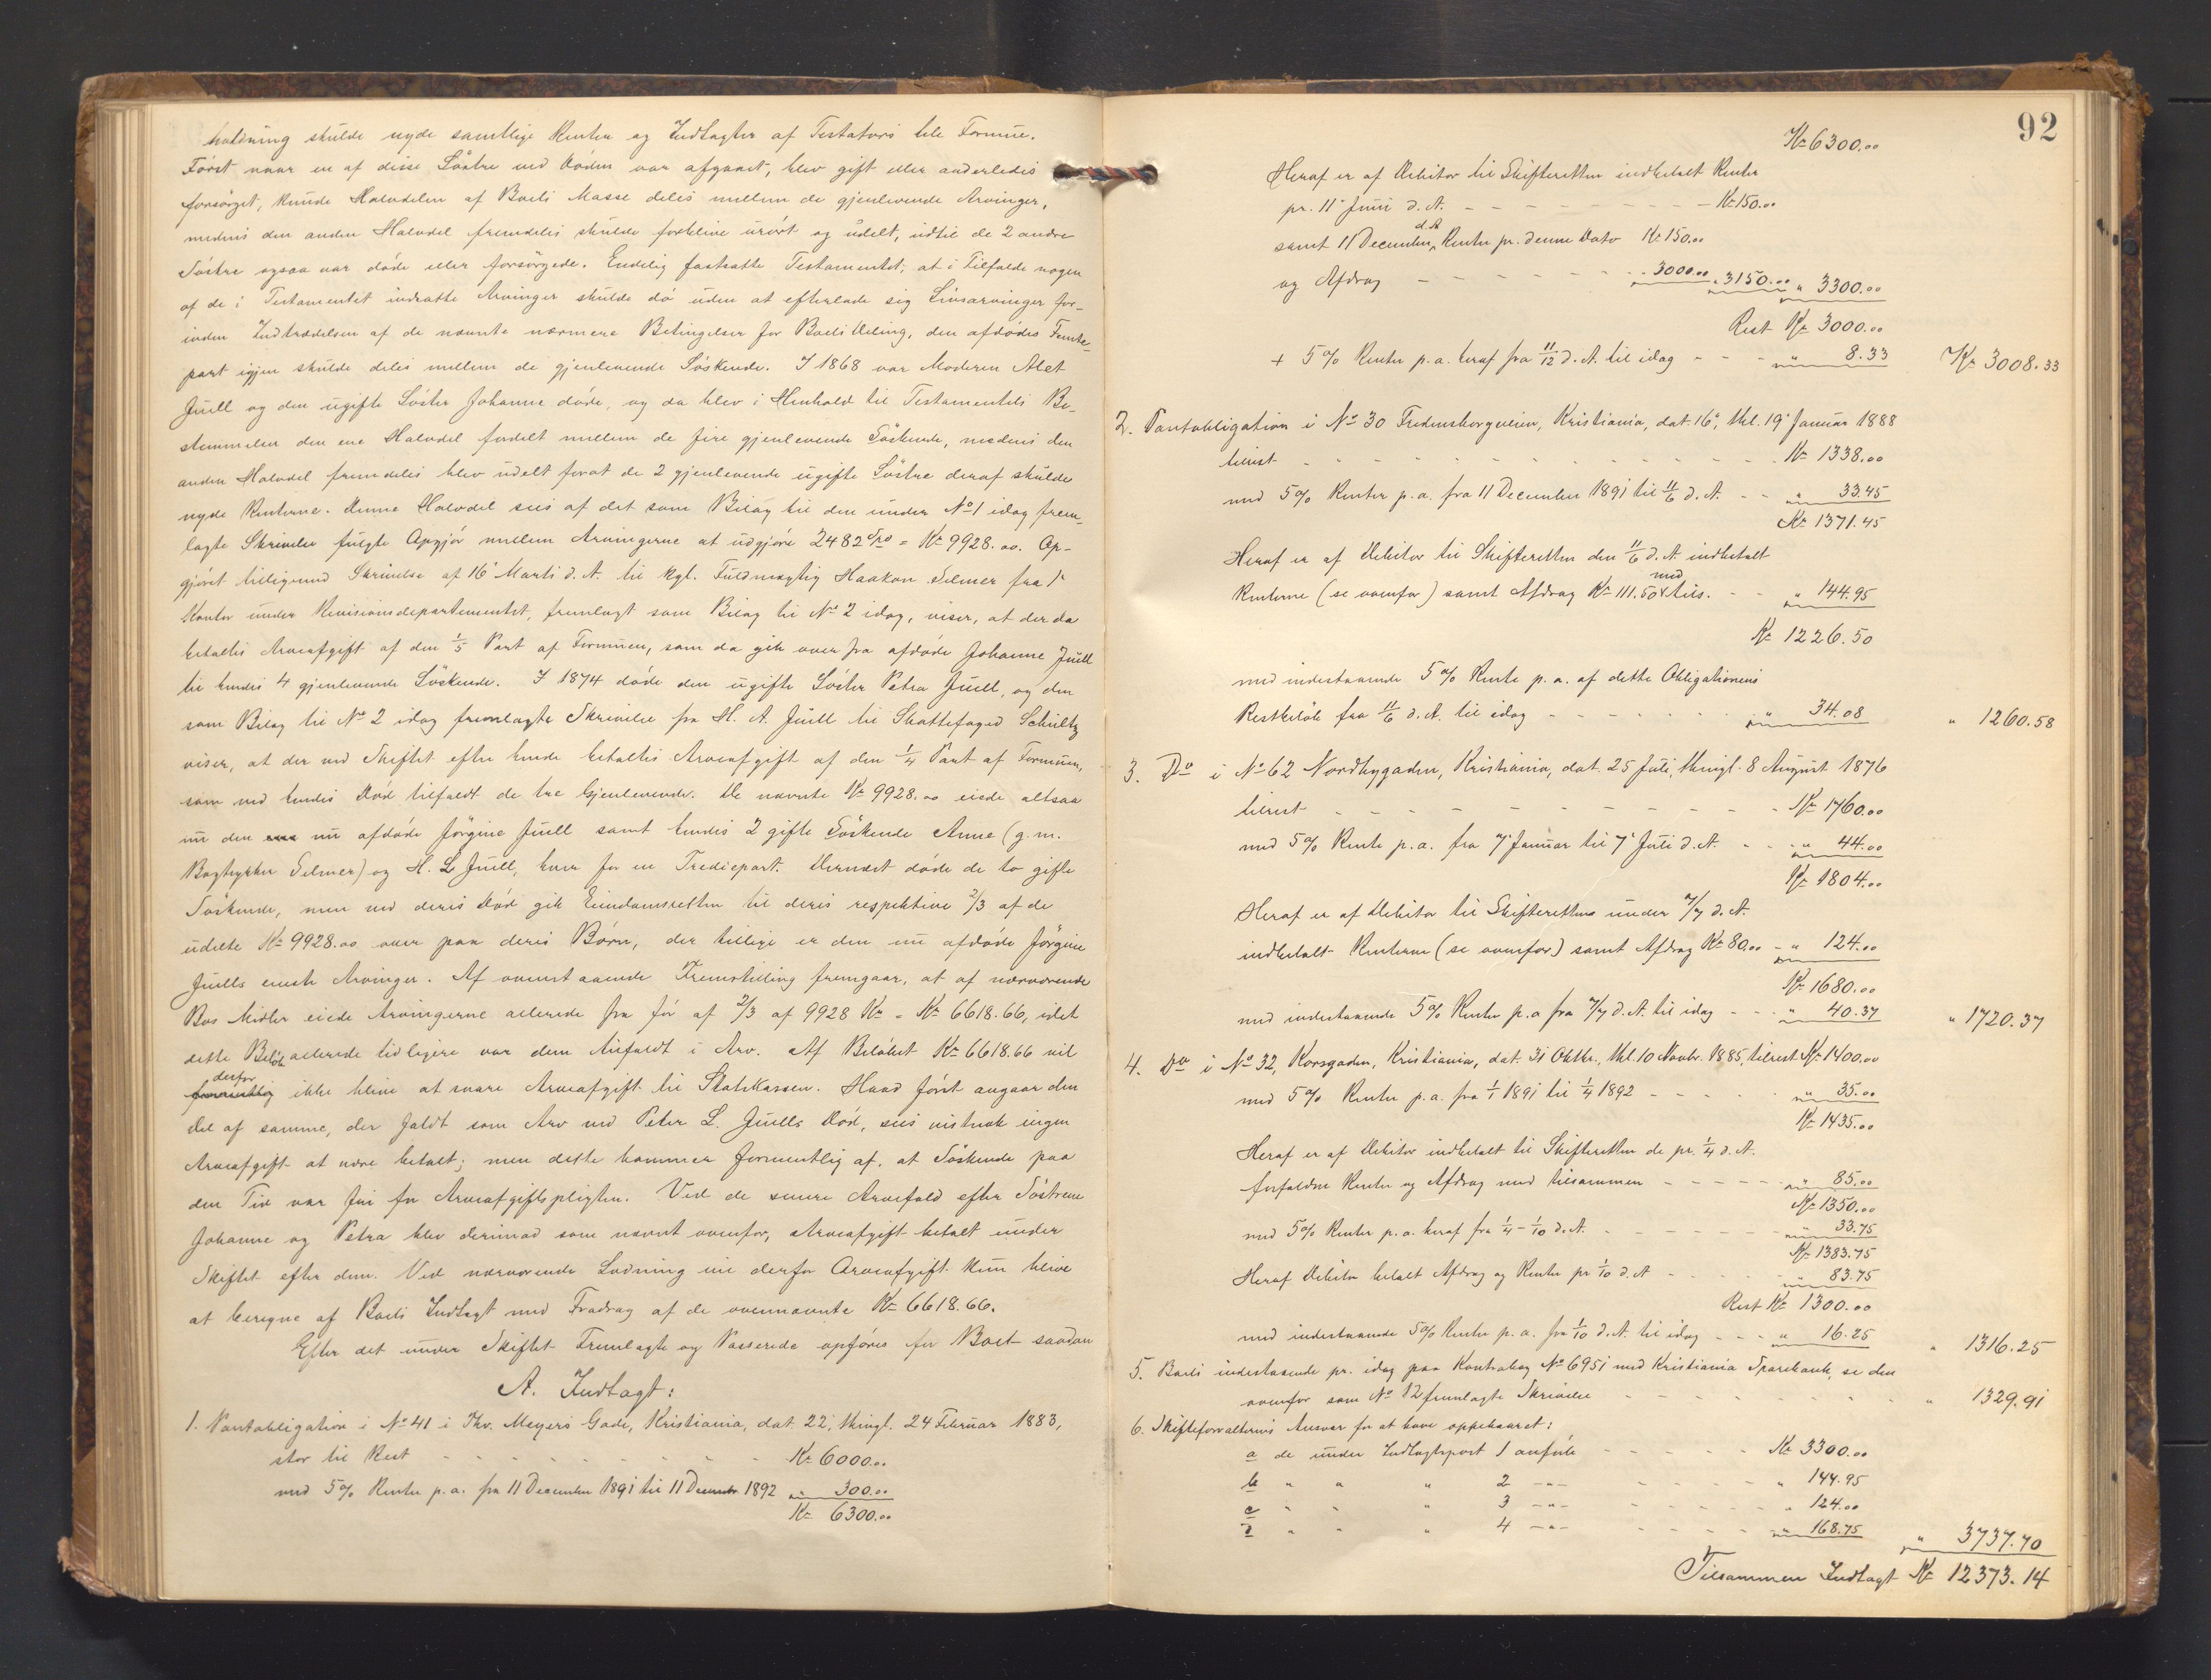 holdning skulde nyde samtlige Renter og Indtægter af Testators hele Formue.
Först naar en af disse Söstre ved Döden var afgaaet, blev gift eller anderledes
forsörget, kunde Halvdelen af Boets Masse deles mellem de gjenlevende Arvinger,
medens den anden Halvdel fremdeles skulde forblive urört og udelt, indtil de 2 andre
Söstre ogsaa var döde eller forsörgede. Endelig fastsatte Testamentet, at i Tilfælde nogen
af de i Testamentet indsatte Arvinger skulde dö uden at efterlade sig Livsarvinger for-
inden Indtrædelsen af de nævnte nærmere Betingelser for Boets Deling, den afdödes Femte-
part igjen skulde deles mellem de gjenlevende Söskende. I 1868 var Moderen Alet
Juell og den ugifte Söster Johanne döde, og da blev i Henhold til Testamentets Be-
stemmelser den ene Halvdel fordelt mellem de fire gjenlevende Söskende, medens den
anden Halvdel fremdeles blev udelt forat de 2 gjenlevende ugifte Söstre deraf skulde
nyde Renterne. Denne Halvdel sees af det som Bilag til den under No 1 idag frem-
lagte Skrivelse fulgte Opgjör mellem Arvingerne at udgjöre 2482 Spd = Kr 9928.00. Op-
gjöret tilligemed Skrivelse af 16de Marts d. A. til kgl. Fuldmægtig Haakon Selmer fra 1ste
Kontor under Revisionsdepartementet, fremlagt som Bilag til No 2 idag, viser, at der da
betaltes Arveafgift af den 1/5 Part af Formuen, som da gik over fra afdöde Johanne Juell
til hendes 4 gjenlevende Söskende. I 1874 döde den ugifte Söster Petra Juell, og den
som Bilag til No 2 idag fremlagte Skrivelse fra H. A. Juell til Skattefoged Schultz
viser, at der ved Skiftet efter hende betaltes Arveafgift af den 1/4 Part af Formuen,
som ved hendes Död tilfaldt de tre Gjenlevende. De nævnte Kr 9928.00 eiede altsaa
nu den nu afdöde Jörgine Juell samt hendes 2 gifte Söskende Anne (g. m.
Bogtrykker Selmer) og H. L Juell, hver for en Trediepart. Dernæst döde de to gifte
Söskende, men ved deres Död gik Eiendomsretten til deres respektive 2/3 af de
udelte Kr 9928.00 over paa deres Börn, der tillige er den nu afdöde Jörgine
Juells eneste Arvinger. Af ovenstaaende Fremstilling fremgaar, at af nærværende
Bos Midler eiede Arvingerne allerede fra för af 2/3 af 9928 Kr = Kr 6618.66, idet
dette Belöb allerede tidligere var dem tilfaldt i Arv. Af Belöbet Kr 6618.66 vil
derfor
formentlig ikke blive at svare Arveafgift til Statskassen. Hvad först angaar den
Del af samme, der faldt som Arv ved Peter L. Juells Död, sees vistnok ingen
Arveafgift at være betalt; men dette kommer formentlig af, at Söskende paa
den Tid var fri for Arveafgiftspligten. Ved de senere Arvefald efter Söstrene
Johanne og Petra blev derimod som nævnt ovenfor, Arveafgift betalt under
Skiftet efter dem. Ved nærværende Lodning vil derfor Arveafgift kun blive
at beregne af Boets Indtægt med Fradrag af de ovennævnte Kr 6618.66.
Efter det under Skiftet Fremlagte og Passerede opföres for Boet saadan
A. Indtægt:
1. Pantobligation i No 41 i Thv. Meyers Gade, Kristiania, dat. 22, thingl. 24 Februar 1883,
stor til Rest - - - Kr 6000.00
med 5% Renter p. a. fra 11 December 1891 til 11 December 1892 " 300.00
Kr 6300.00
92
Kr 6300.00
Heraf er af Debitor til Skifteretten indbetalt Renter
pr. 11te Juni d. A. - - - Kr 150.00
d. A.
samt 11 December Renter pr. denne Dato Kr 150.00
og Afdrag - - - " 3000.00 " 3150.00 " 3300.00
Rest Kr 3000.00
+ 5% Renter p. a. heraf fra 11/12 d. A. til idag - - - " 8.33 Kr 3008.33
2. Pantobligation i No 30 Fredensborgveien, Kristiania, dat. 16de, thl. 19de Januar 1888
tilrest - - - Kr 1338.00
med 5% Renter p. a. fra 11 December 1891 til 11/6 d. A. - - " 33.45
Kr 1371.45
Heraf er af Debitor til Skifteretten den 11/6 d. A. indbetalt
med
Renterne (se ovenfor) samt Afdrag Kr 111.50 tils. - - " 144.95
Kr 1226.50
med indestaaende 5% Rente p. a. af dette Obligationens
Restbelöb fra 11/6 d. A. til idag - - - " 34.08 " 1260.58
3. Do i No 62 Nordbygaden, Kristiania, dat. 25 Juli, thingl. 8 August 1876
tilrest - - - Kr 1760.00
med 5% Rente p. a. fra 7de Januar til 7de Juli d. A. - - " 44.00
Kr 1804.00
Heraf er af Debitor til Skifteretten under 7/7 d. A.
indbetalt Renterne (se ovenfor) samt Afdrag Kr 80.00 - " 124.00
Kr 1680.00
med indestaaende 5% Renter p. a fra 7/7 d. A. til idag - - " 40.37 " 1720.37
4. Do i No 32, Korsgaden, Kristiania, dat. 31 Oktbr., thl. 10 Novbr. 1885, tilrest Kr 1400.00
med 5% Renter p. a. fra 1/1 1891 til 1/4 1892 - - - " 35.00
Kr 1435.00
Heraf er af Debitor indbetalt til Skifteretten de pr. 1/4 d. A.
forfaldne Renter og Afdrag med tilsammen - - - " 85.00
Kr 1350.00
med 5% Renter p. a. heraf fra 1/4 - 1/10 d. A. - - - " 33.75
Kr 1383.75
Heraf Debitor betalt Afdrag og Renter pr 1/10 d. A - - - " 83.75
Rest Kr 1300.00
med indestaaende 5% Renter p. a. fra 1/10 d. A. til idag - - - " 16.25 " 1316.25
5. Boets indestaaende pr. idag paa Kontrabog No 6951 med Kristiania Sparebank, se den
ovenfor som No 12 fremlagte Skrivelse - - - " 1329.91
6. Skifteforvalterens Ansvar for at have oppebaaret:
a de under Indtægtspost 1 anförte - - - Kr 3300.00
b " " " 2 -"- - - - " 144.95
c " " " 3 -"- - - - " 124.00
d " " " 4 -"- - - - " 168.75 " 3737.70
Tilsammen Indtægt Kr 12373.14